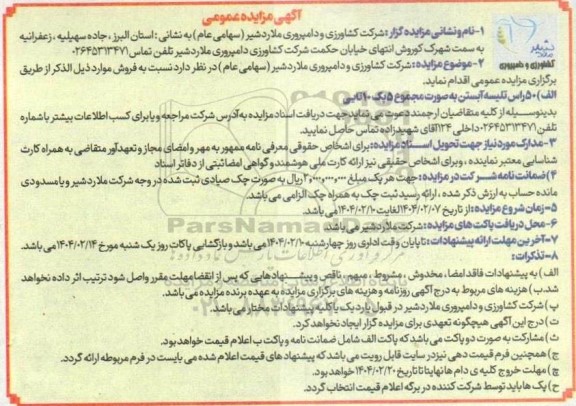 آگهی مزایده عمومی
۱- نام و نشانی مزایده گزار: شرکت کشاورزی و دامپروری ملاردشیر (سهامی عام) به نشانی: استان البرز، جاده سهیلیه، زعفرانیه
به سمت شهرک کوروش انتهای خیابان حکمت شرکت کشاورزی دامپروری ملاردشیر تلفن تماس ۰۲۶۴۵۳۱۳۴۷۱
۲- موضوع مزایده: شرکت کشاورزی و دامپروری ملاردشیر (سهامی عام) در نظر دارد نسبت به فروش موارد ذیل الذکر از طریق
برگزاری مزایده عمومی اقدام نماید.
ملارد شیر
کشاورزی و دامپروری
الف) ۵۰ راس تلیسه آبستن به صورت مجموع ۵ پک ۱۰ تایی
بدینوسیله از کلیه متقاضیان ارجمند دعوت می نماید جهت دریافت اسناد مزایده به آدرس شرکت مراجعه و یا برای کسب اطلاعات بیشتر با شماره
تلفن ۰۲۶۴۵۳۱۳۴۷۱ داخلی ۱۲۴ آقای شهیدزاده تماس حاصل نمایید.
۳- مدارک مورد نیاز جهت تحویل اسناد مزایده: برای اشخاص حقوقی معرفی نامه ممهور به مهر و امضای مجاز و تعهدآور متقاضی به همراه کارت
شناسایی معتبر نماینده، و برای اشخاص حقیقی نیز ارائه کارت ملی هوشمند و گواهی امضا ثبتی از دفاتر اسناد
۴) ضمانت نامه شرکت در مزایده: جهت هر پک مبلغ ۲٫۰۰۰٫۰۰۰٫۰۰۰ ریال به صورت چک صیادی ثبت شده در وجه شرکت ملاردشیر و یا مسدودی
مانده حساب به ارزش ذکر شده، ارائه رسید ثبت چک به همراه چک الزامی می باشد.
۵- زمان شروع مزایده: از تاریخ ۱۴۰۴/۰۲/۰۷ لغایت ۱۴۰۴/۰۲/۱۰ می باشد.
۶- محل دریافت پاکت های مزایده: شرکت ملاردشیر می باشد.
۷- آخرین مهلت ارائه پیشنهادات: تا پایان وقت اداری روز چهارشنبه ۱۴۰۴/۰۲/۱۰ می باشد و بازگشایی پاکات روز یک شنبه مورخ ۱۴۰۴/۰۲/۱۴ می باشد.
۸- تذکرات:
الف) به پیشنهادات فاقد امضا، مخدوش، مشروط، مبهم، ناقص و پیشنهادهایی که پس از انقضا مهلت مقرر واصل شود ترتیب اثر داده نخواهد
شد. ب) هزینه های مربوط به درج آگهی روزنامه و هزینه های برگزاری مزایده به عهده برنده مزایده می باشد.
پ) شرکت کشاورزی و دامپروری ملاردشیر در قبول یا رد یک یا کلیه پیشنهادات مختار می باشد.
ت) درج این آگهی هیچگونه تعهدی برای مزایده گزار ایجاد نخواهد کرد.
ث) مشارکت به صورت دو پاکت می باشد که پاکت الف شامل ضمانت نامه و پاکت ب اعلام قیمت خواهد بود.
ج) همچنین فرم قیمت دهی نیز در سایت قابل رویت می باشد که پیشنهادهای قیمت اعلام شده می بایست در فرم مربوطه ارائه گردد.
چ) مهلت خروج کلیه ی دام ها نهایتا تا تاریخ ۱۴۰۴/۰۲/۲۰ خواهد بود.
ح) پک ها باید توسط شرکت کننده در برگه اعلام قیمت انتخاب گردد.
ParsNamadData